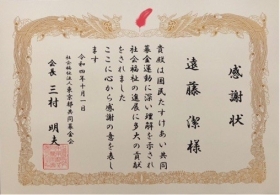 感謝状
遠藤 潔様
貴殿は国民たすけあい共同
募金運動に深い理解を示され
社会福祉の進展に多大の貢献
をされました
ここに心から感謝の意を表し
ます
令和四年十月一日
社会福祉法人東京都共同募金会
会長 三村 明夫